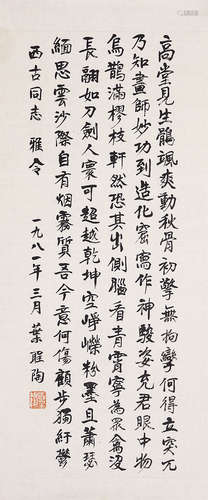 高堂見生鶻颯爽動秋骨初驚無拘攣何得立突兀
乃知畫師妙功到造化窟寫作神駿姿充君眼中物
烏鵲滿樛枝軒然恐其出側腦看青霄寧為衆禽没
長翮如刀劍人寰可超越乾坤空崢嶸粉墨且蕭瑟
緬思雲沙際自有烟霧質吾今意何傷顧步獨紆鬱
西古同志 雅令
一九八一年三月 葉聖陶